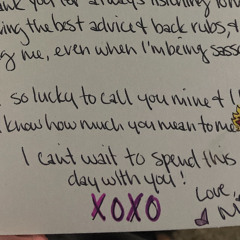 you for always listening
ing the best advice & back rubs, &
me, even when I'm being sass
so lucky to call you mine & I
know how much you mean to me
I can't wait to spend this
day with you!
Love,
XOXO